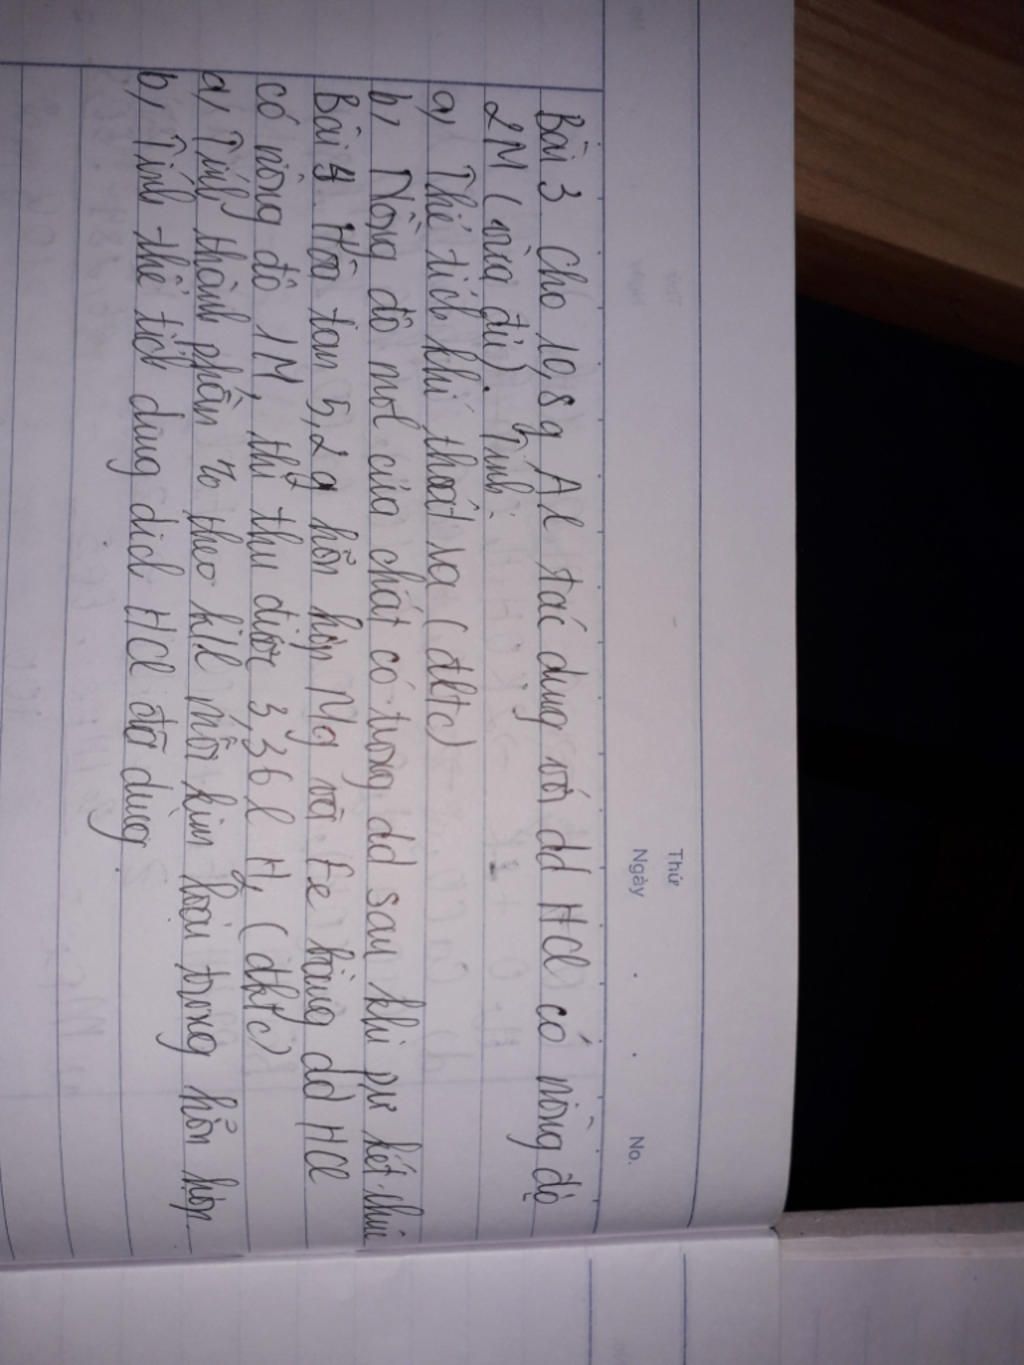 Thứ
Ngày . . No.
Bài 3 Cho 10,8 g Al tác dụng với dd HCl có nồng độ
2M (vừa đủ). Tính:
a, Thể tích khí thoát ra (đktc)
b, Nồng độ mol của chất có trong dd sau khi pư kết thúc
Bài 4 Hòa tan 5,2 g hỗn hợp Mg và Fe bằng dd HCl
có nồng độ 1M, thì thu được 3,36 l H2 (đktc)
a, Tính thành phần % theo k/l mỗi kim loại trong hỗn hợp.
b, Tính thể tích dung dich HCl đã dùng.